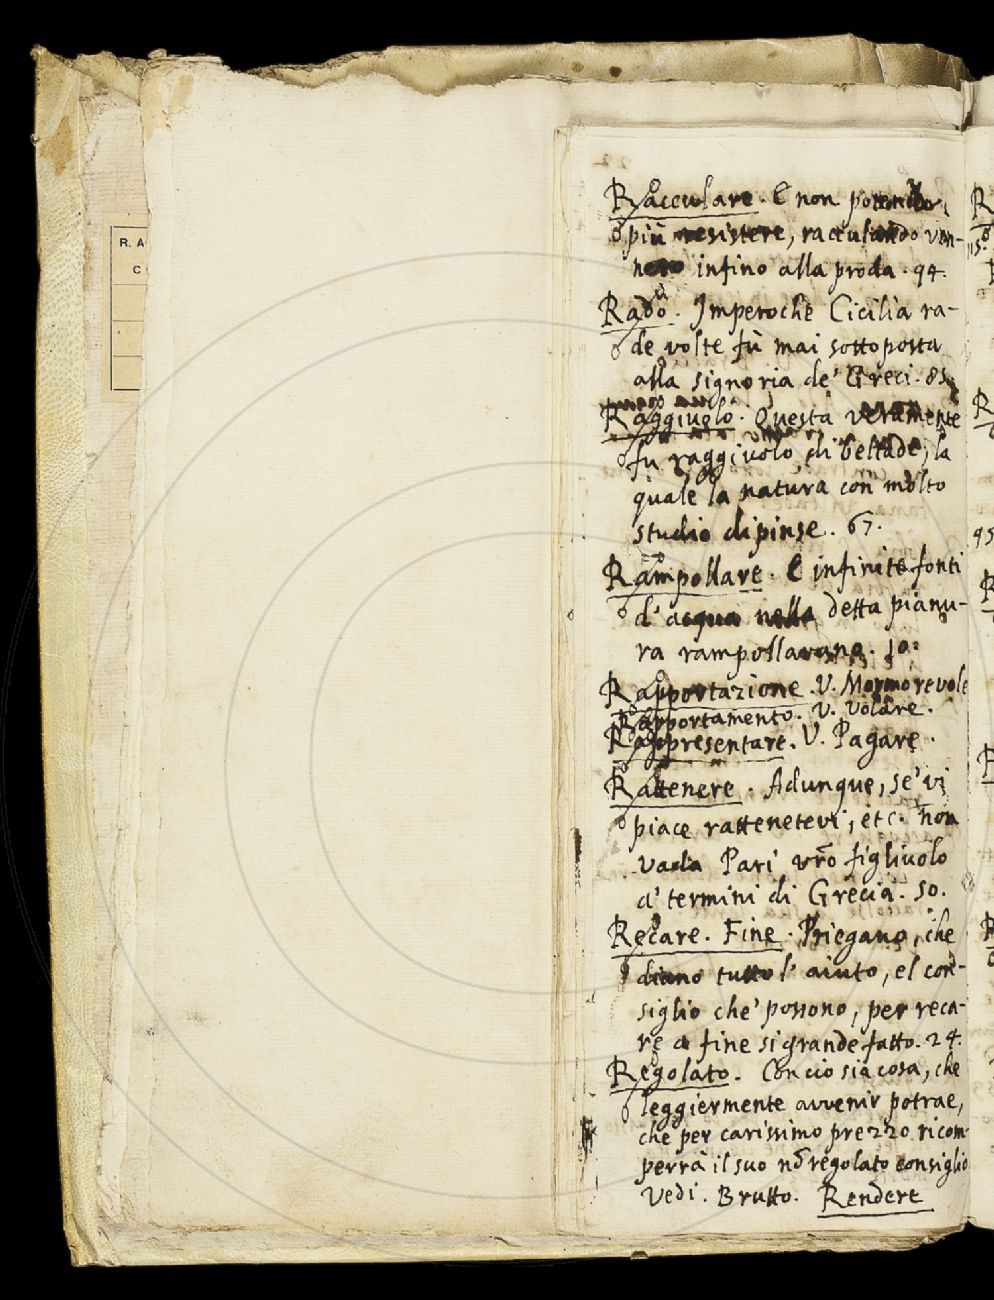 Racculare. E non potendo
più resistere, racculando ven-
nero infino alla proda. 94.
Rado. Imperoche Cicilia ra-
de volte fù mai sottoposta
alla signoria de' Greci. 85.
Raggiuolo. Questa veramente
fu raggiuolo di beltade, la
quale la natura con molto
studio dipinse. 67.
Rampollare. E infinite fonti
d'acqua nella detta pianu-
ra rampollavano. 10.
Rapportazione. V. Mormorevole
Rapportamento. V. Volare.
Rappresentare. V. Pagare.
Rattenere. Adunque, se' vi
piace rattenetevi, etc. non
vada Pari vr̃o figliuolo
a' termini di Grecia. 50.
Recare. Fine. Priegano, che
diano tutto l' aiuto, el con-
siglio che' possono, per reca-
re a fine si grande fatto. 24.
Regolato. Concio sia cosa, che
leggiermente avvenir potrae,
che per carissimo prezzo ricom-
perrà il suo nõ regolato consiglio
Vedi. Brutto. Rendere